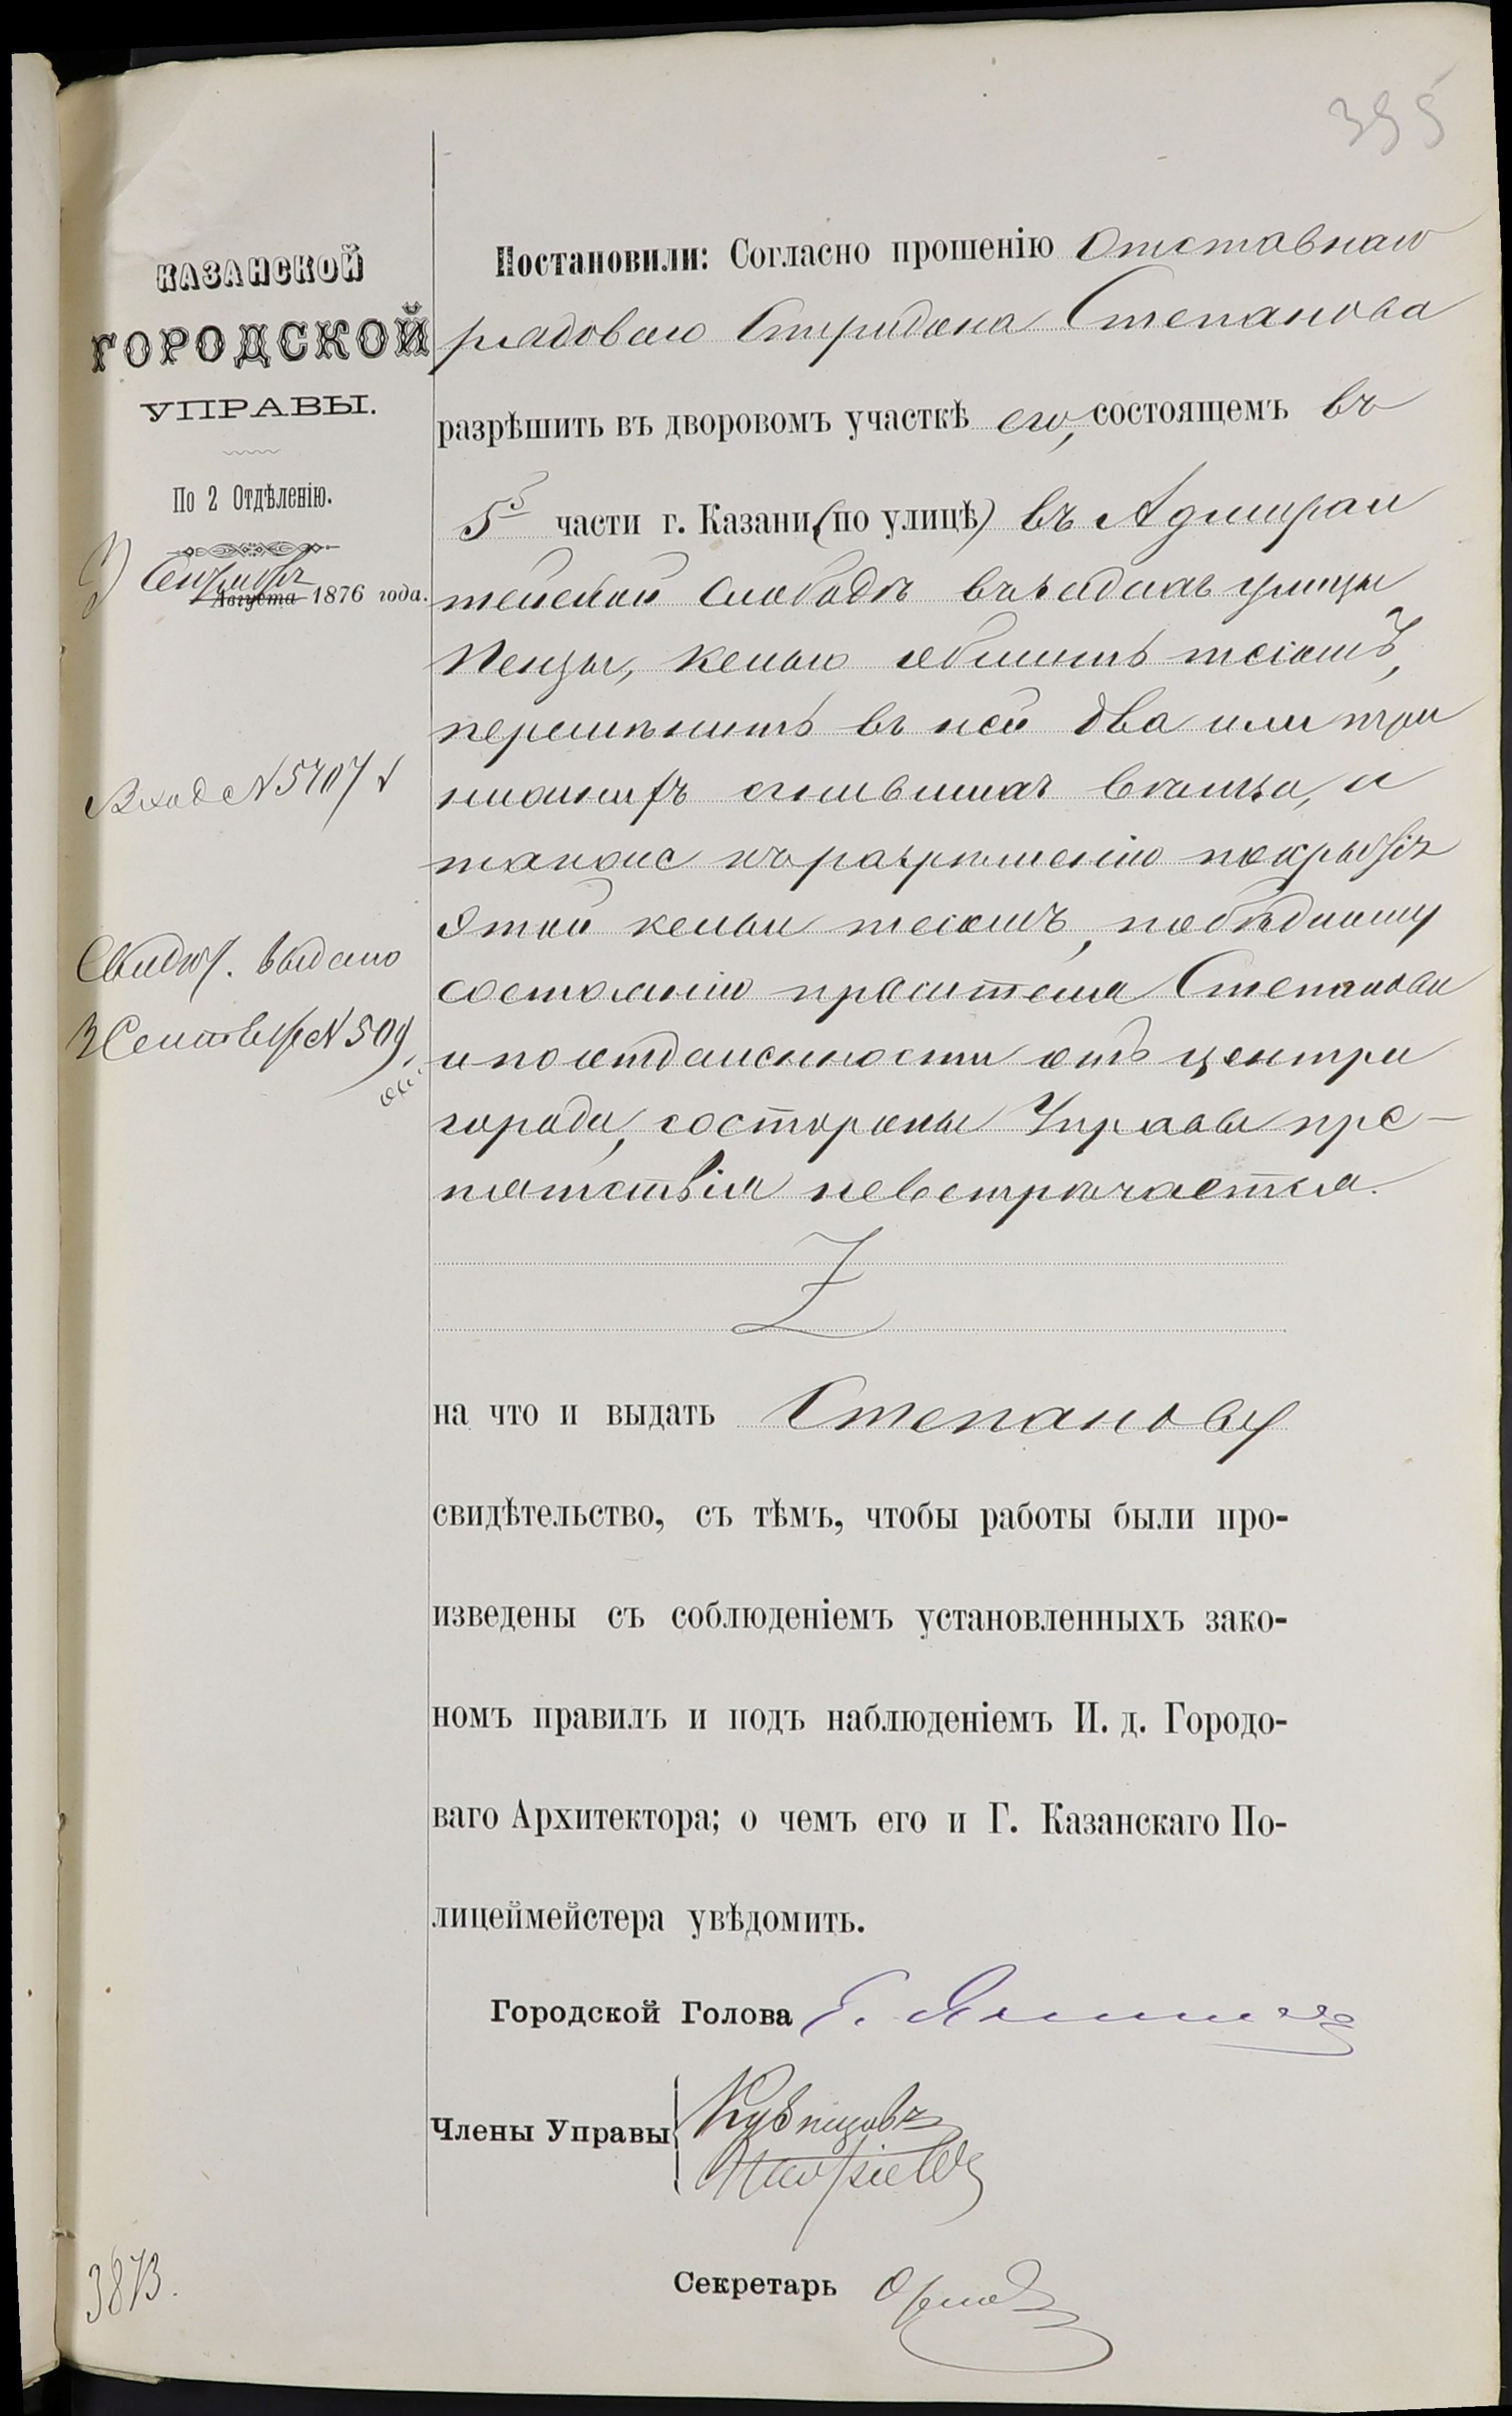 395
КАЗАНСКОЙ
ГОРОДСКОЙ
УПРАВЫ.
По 2 Отдѣленію.
3 Сентября
Августа 1876 года.
Вход №5707
Свидѣт. выдано
3 Сентября №509
3873.
Постановили: Согласно прошенію Отставнаго
рядоваго Спиридона Степанова
разрѣшить въ дворовомъ участкѣ его, состоящемъ въ
5й части г. Казани (по улицѣ) въ Адмирал
тейской слободѣ улицы
Пензы, келью обшить тесомъ,
перемѣнить въ ней два или три
нижнихъ сгнившихъ вѣнца, и
также къ разрѣшенію покрытія
этой кельи тесомъ, по бѣдному
состоянію просителя Степанова
и по отдаленности отъ центра
города, со стороны Управы пре-
пятствія не встрѣчается.
Z
на что и выдать Степанову
свидѣтельство, съ тѣмъ, чтобы работы были про-
изведены съ соблюденіемъ установленныхъ зако-
номъ правилъ и подъ наблюденіемъ И. д. Городо-
ваго Архитектора; о чемъ его и Г. Казанскаго По-
лицеймейстера увѣдомить.
Городской Голова
Члены Управы Кузнецовъ
Секретарь Орловъ